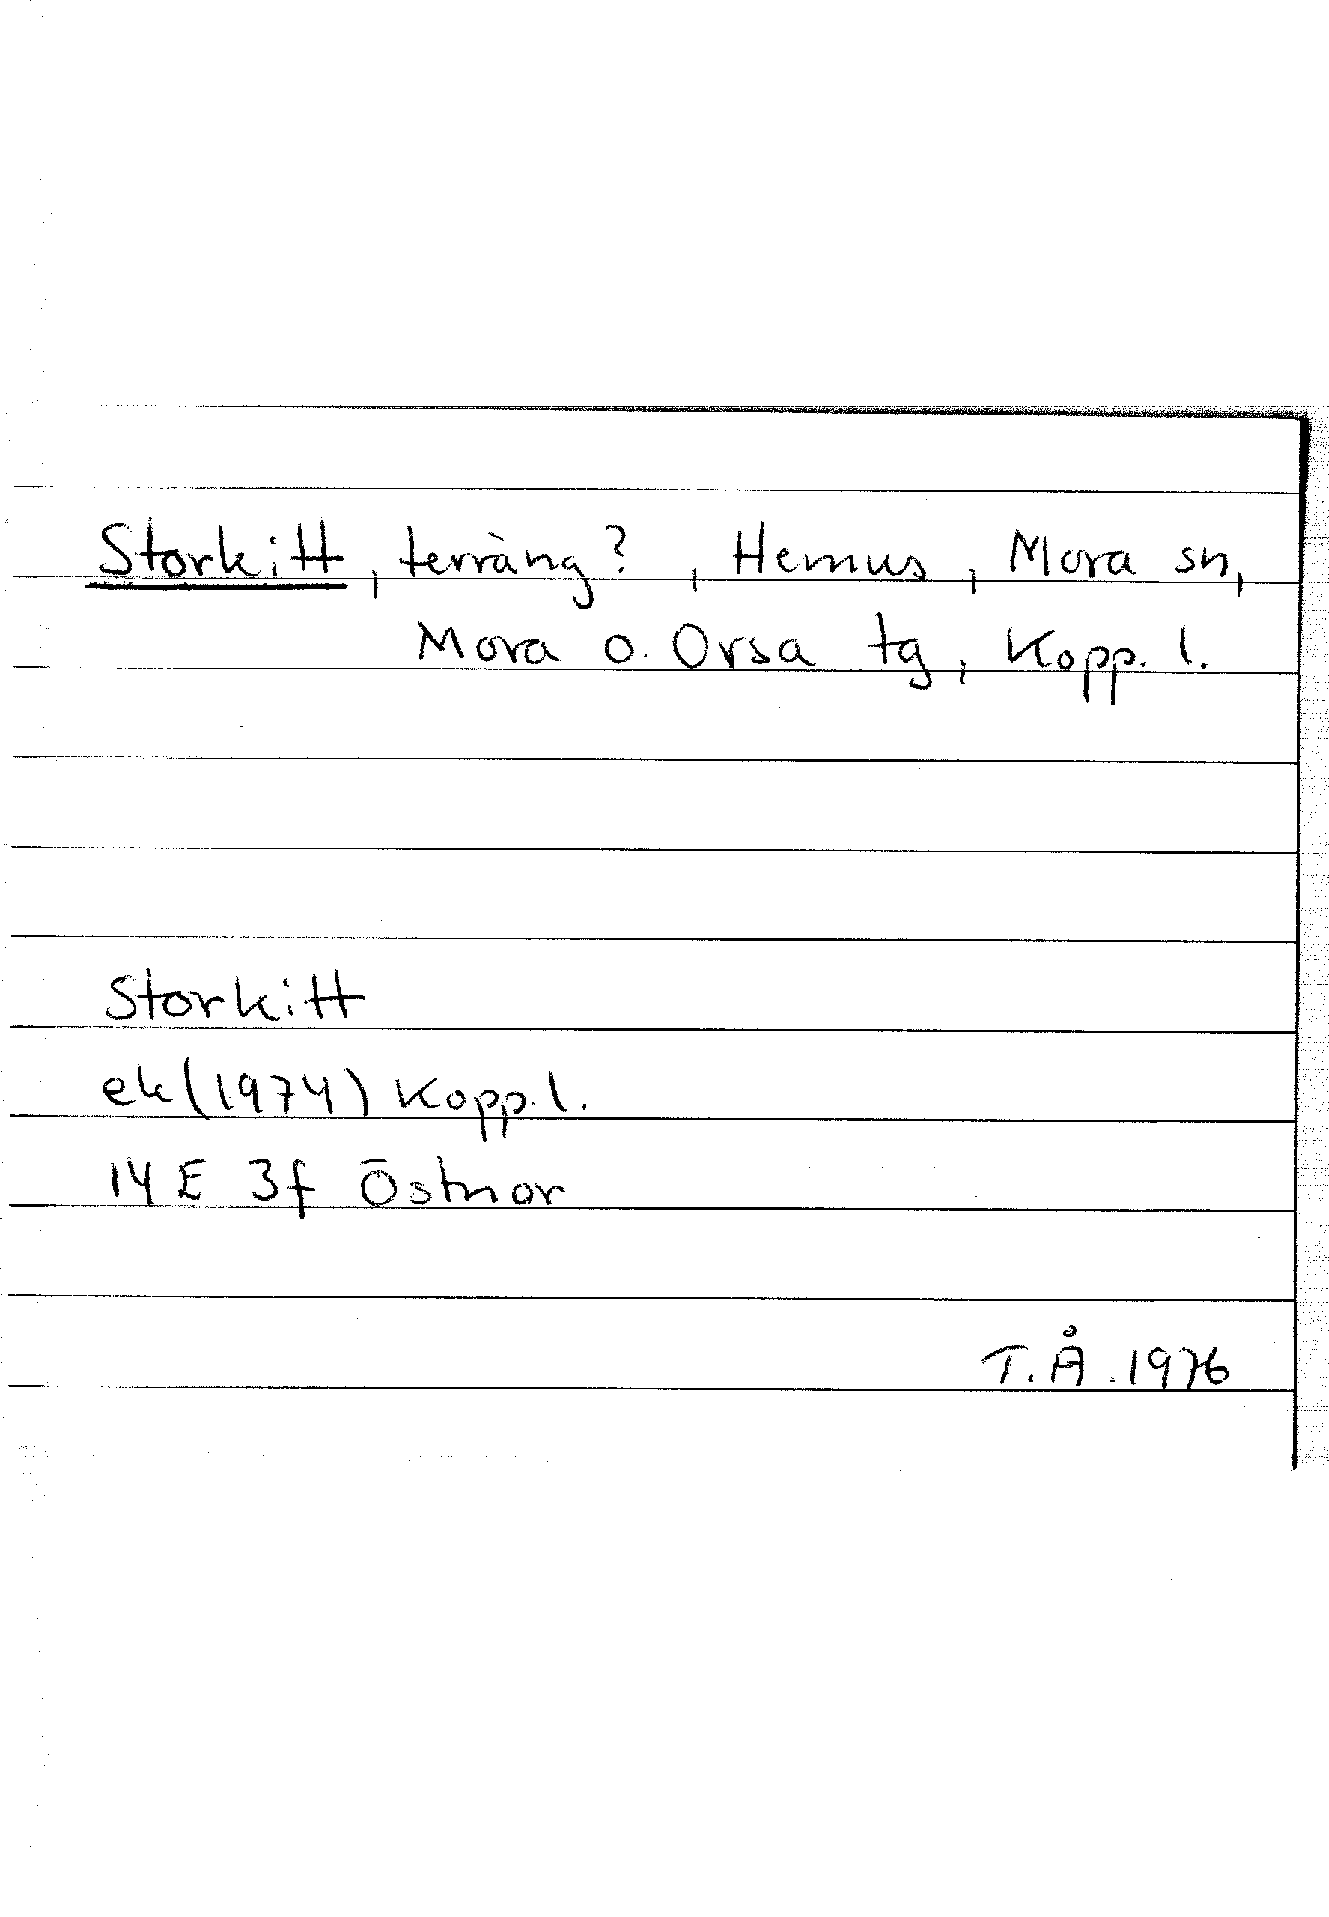 Storkitt, terräng?, Hemus, Mora sn,
Mora o. Orsa tg, Kopp. l.
Storkitt
ek (1974) Kopp. l.
14 E 3f Östnor
T.Å. 1976